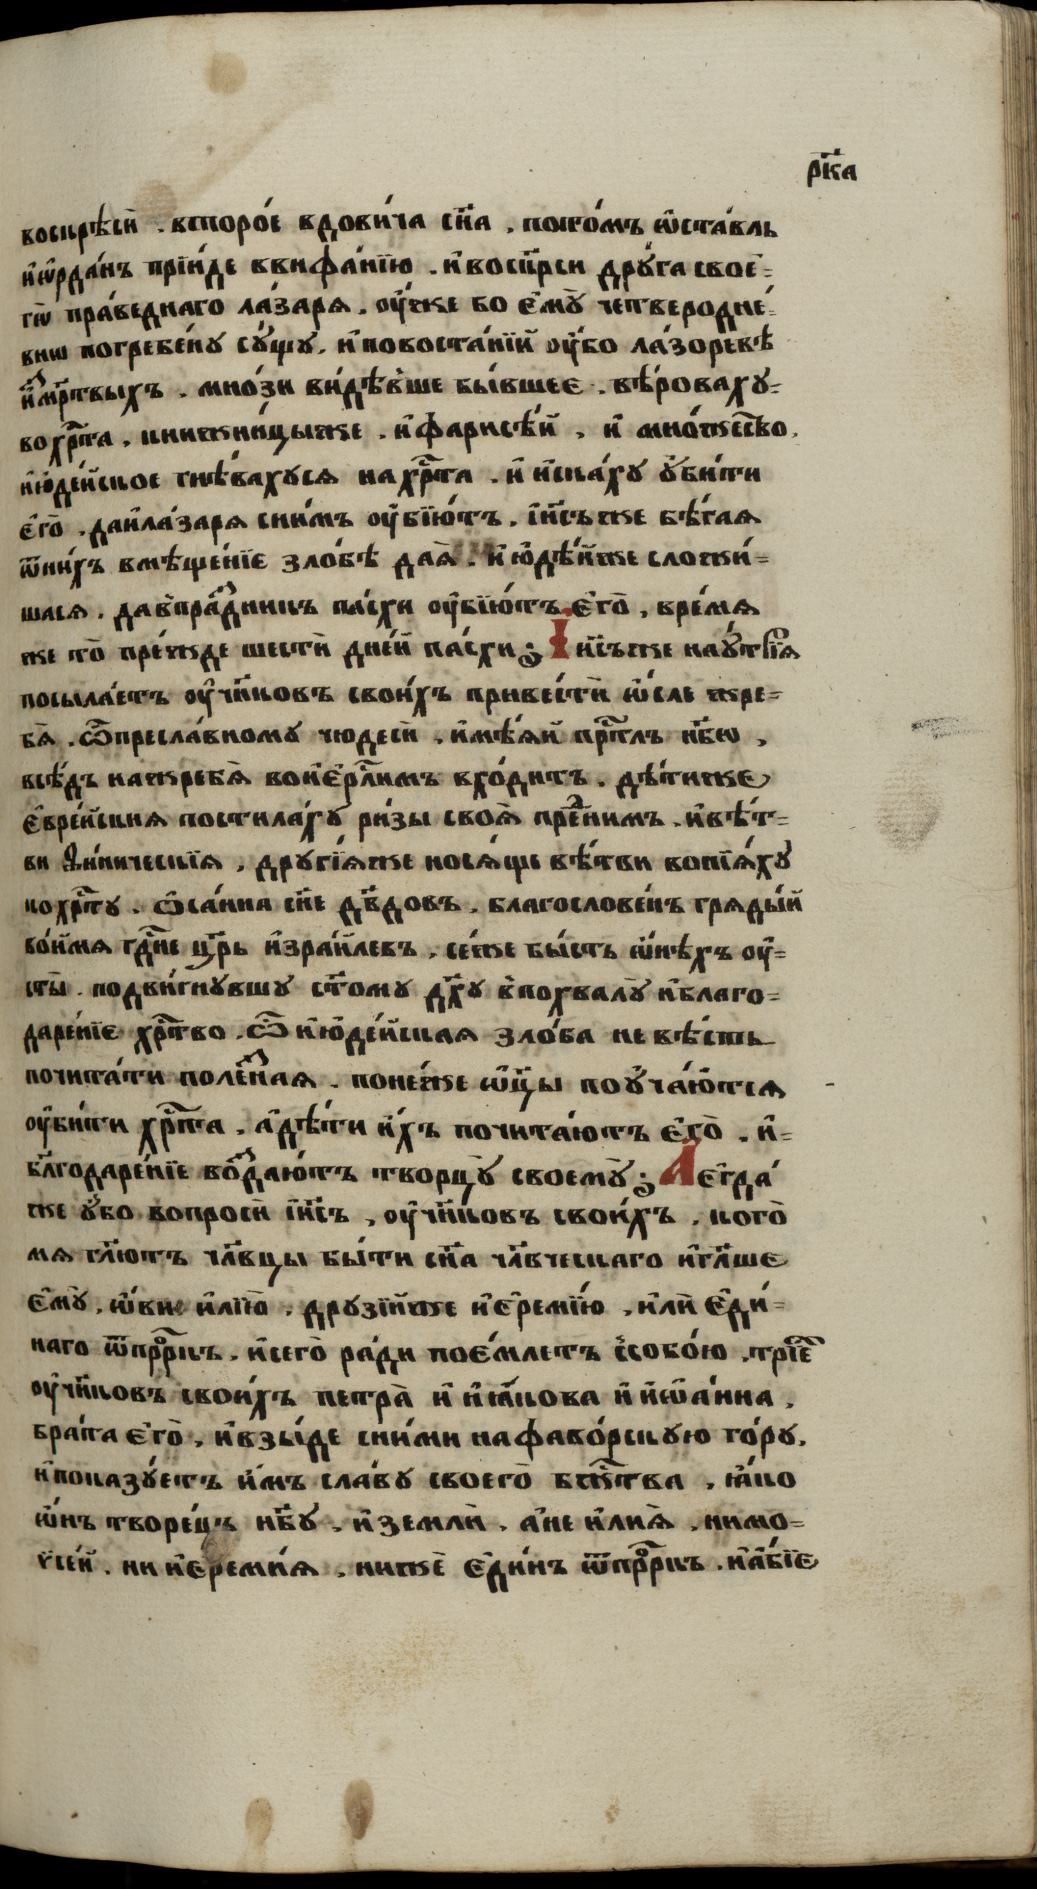 рк҃а
воскрѣсѝ . второ́е вдови́ча сн҃а , пото́мъ ѡ҆ста́вль
и҆ѡ҆рда́нъ прїи́де ввифа́нїю . и҆воскр҃си дрꙋ́га свое-
гѡ̀ пра́веднаго ла́заря . оу҆́же бо є҆мꙋ̀ четвероднє́-
внѡ погребе́нꙋ сꙋ́щꙋ . и҆повоста́нїй оу҆́бо ла́зоревѣ
и҆з̾ме́ртвыхъ . мно́зи ви́дѣвше бы́вшеє . вѣ́роваху-
вохрⷭ҇та , книжницыже . и҆фарисѣ́й , и҆ мно́жество ,
и҆ю҆де́йское гнѣ́вахуся нахрⷭ҇та . и҆ и҆ска́хꙋ ᲂу҆би́ти
є҆го̀ . даи҆ла́заря сни́мъ оу҆бїю́тъ . і҆и҃съже бѣ́гая
ѿни́хъ вмѣще́нїе зло́бѣ дая̀ . и҆ ю҆дѣ́йже сложи́-
шася . давпра́здникъ па́схи оу҆бїю́тъ є҆го̀ , вре́мя
же то̀ пре́жде шестѝ дне́й па́схи ; І҆и҃съже наᲂу҆́трїя
посыла́етъ оу҆чн҃ковъ свои́хъ привестѝ ѡ҆́сле жре-
бя̀ . ѽпресла́вномꙋ чюдесѝ . и҆мѣ́яй прⷭ҇тлъ нб҃ѡ ,
всѣ́дъ нажребя̀ вои҆є҆рⷭ҇лимъ вхо́дитъ . дѣ́тиже
є҆вре́йския постила́хꙋ ри́зы своя̀ прⷣениимъ . и҆вѣ́т-
ви фи́нически́я , дрꙋгі́яже нося́щє вѣ́тви вопїя́хꙋ
кохрⷭ҇тꙋ . ѡ҆са́нна сн҃е дв҃довъ . благослове́нъ гряды́й
во́имя гдⷭ҇не цр҃ь и҆зра́илевъ , се́же бы́сть ѿнѣхъ оу҆-
сты̀ . подви́гнувшꙋ ст҃омꙋ дх҃ꙋ впохвалꙋ̀ и҆благо-
даре́нїе хрⷭ҇тво . ѽ и҆ю҆де́йская зло́ба не вѣ́сть
почита́ти поле́зная . поне́же ѡ҆ц҃ы поᲂу҆ча́ются
оу҆би́ти хрⷭ҇та , а҆дѣ́ти и҆́хъ почита́ютъ є҆го̀ . и҆-
бл҃годаре́нїе воздаю́тъ творцꙋ̀ своемꙋ̀ ; Ае҆гда́
же ᲂу҆́бо вопросѝ і҆и҃съ , оу҆чн҃ковъ свои́хъ . кого̀
мя гл҃ютъ чл҃вцы бы́ти сн҃а чл҃вческаго и҆гл҃ше
є҆мꙋ̀ , ѡ҆́ви и҆лїю̀ . дрꙋзі́йже и҆є҆реми́ю , и҆лѝ є҆ди́-
наго ѿпрⷪ҇ркъ . и҆сего̀ ра́ди пое́млетъ ссобо́ю . трїе́
оу҆чн҃ковъ свои́хъ петра̀ и҆ и҆я҆́кова и҆ и҆ѡ҆а́нна ,
бра́та є҆го̀ , и҆взы́де сни́ми нафаво́рскую го́рꙋ ,
и҆показꙋ́етъ и҆́мъ сла́вꙋ своего̀ бжⷭ҇тва , ꙗ҆́ко
ѡ҆́нъ творе́цъ нб҃ꙋ , и҆землѝ . а҆не и҆лия̀ , нимо-
ѵ҆се́й . ни и҆є҆реми́я , нижѐ є҆ди́нъ ѿпрⷪ҇ркъ . и҆а҆́бїе